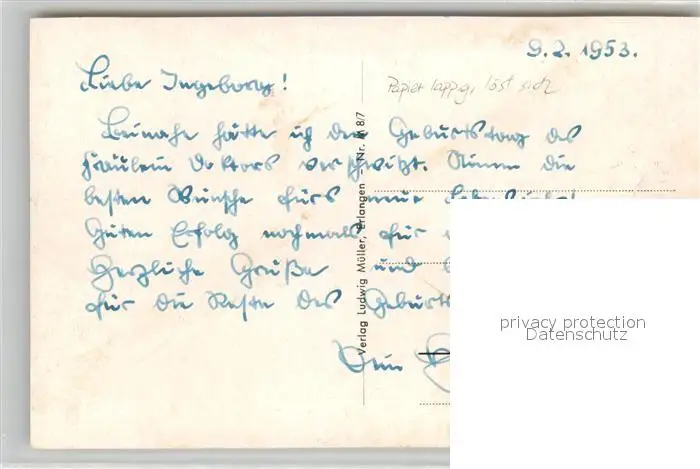 9.2.1953.
Liebe Ingeborg!
Papier lappig, löst sich
Beinahe hätte ich den Geburtstag des
Fräulein Doktors verschwitzt. Nimm die
besten Wünsche fürs neue Lebensjahr!
Guten Erfolg nochmals für
Herzliche Grüße und
für die Reste des Geburts
Dein
Verlag Ludwig Müller, Erlangen - Nr. M 8/7
privacy protection
Datenschutz